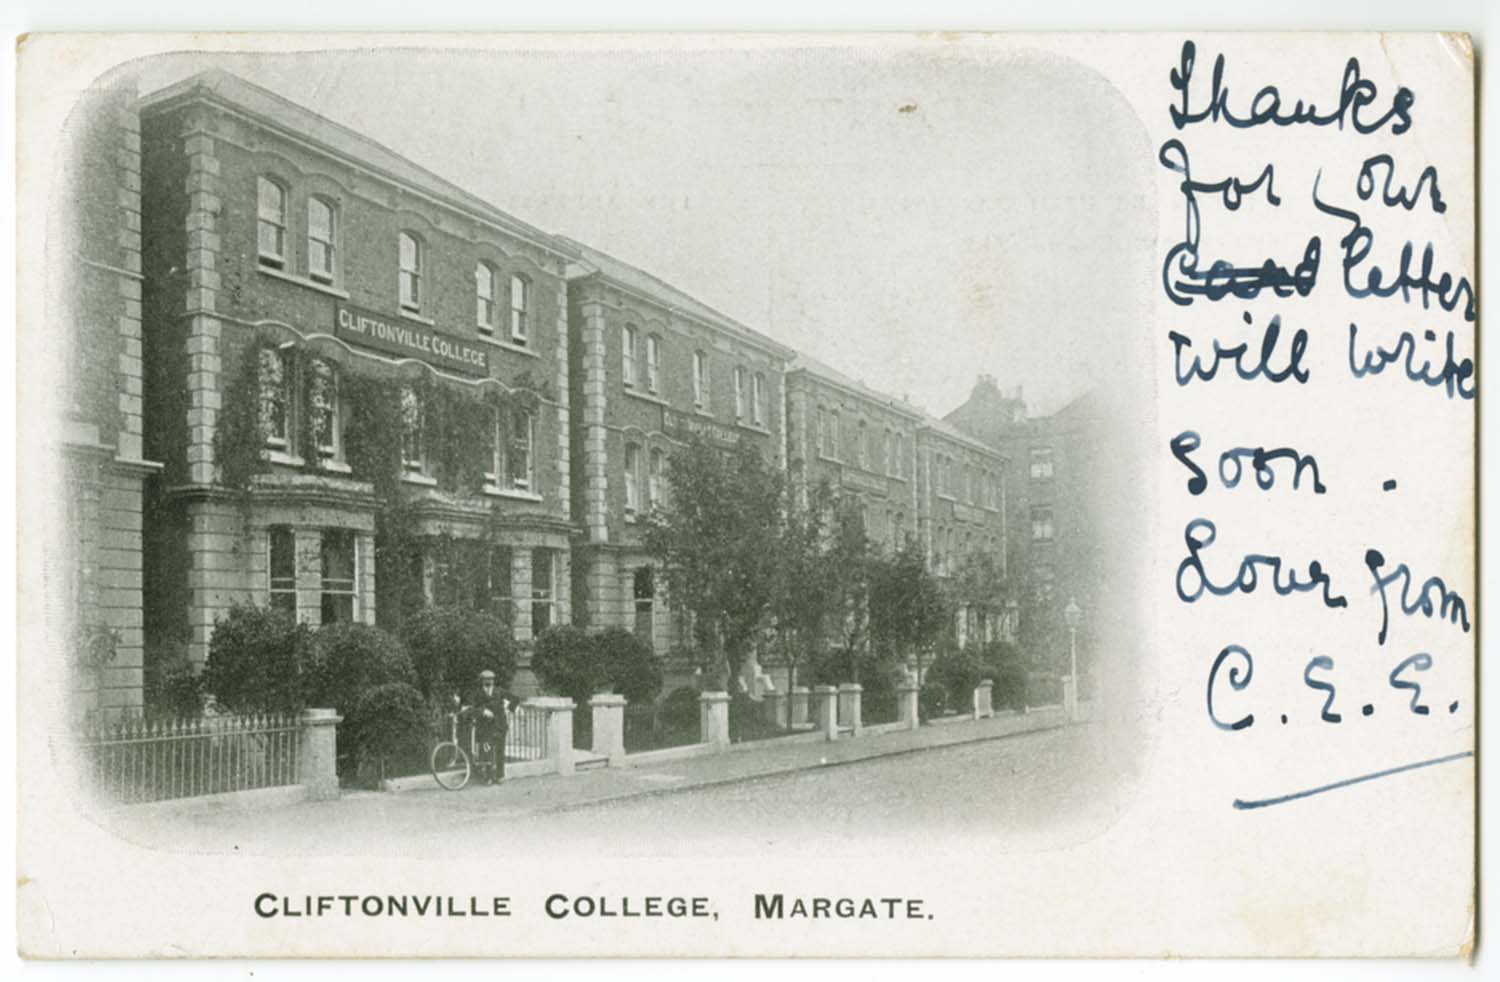 CLIFTONVILLE COLLEGE
Thanks
for your
Card letter
will write
soon.
Love from
C. E. E.
CLIFTONVILLE COLLEGE, MARGATE.